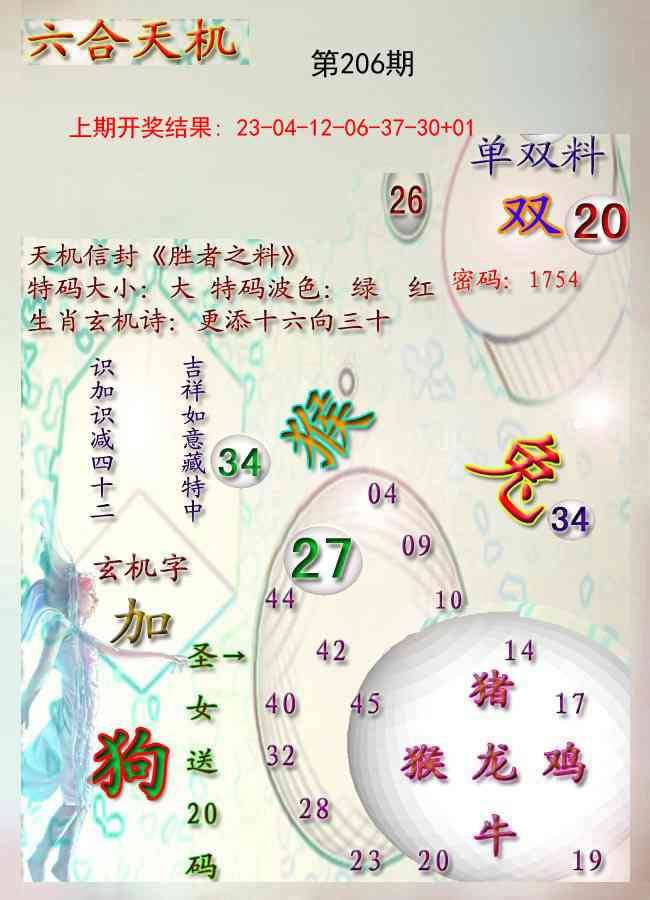 六合天机
第206期
上期开奖结果: 23-04-12-06-37-30+01
单双料
26
双 20
天机信封《胜者之料》
特码大小: 大 特码波色: 绿 红
密码: 1754
生肖玄机诗: 更添十六向三十
吉祥如意藏特中
识加识减四十二
34
猴
兔
34
04
27
09
44
10
玄机字
加
圣女送20码
→
42
14
猪
40
45
17
狗
32
猴 龙 鸡
28
牛
23
20
19